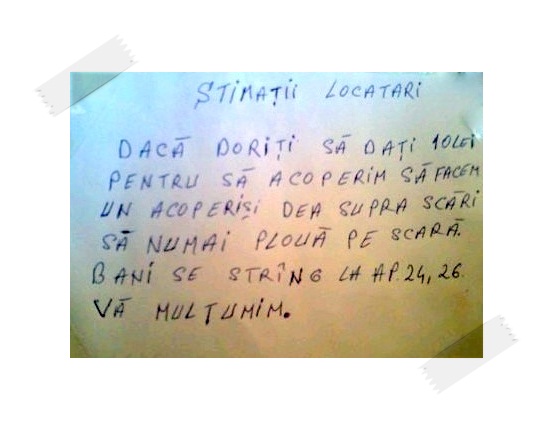 ȘTIMAȚII LOCATARI
DACĂ DORIȚI SĂ DAȚI 10LEI
PENTRU SĂ ACOPERIM SĂ FACEM
UN ACOPERIȘI DEA SUPRA SCĂRI
SĂ NUMAI PLOUĂ PE SCARĂ.
BANI SE STRÎNG LA AP. 24, 26.
VĂ MULȚUMIM.